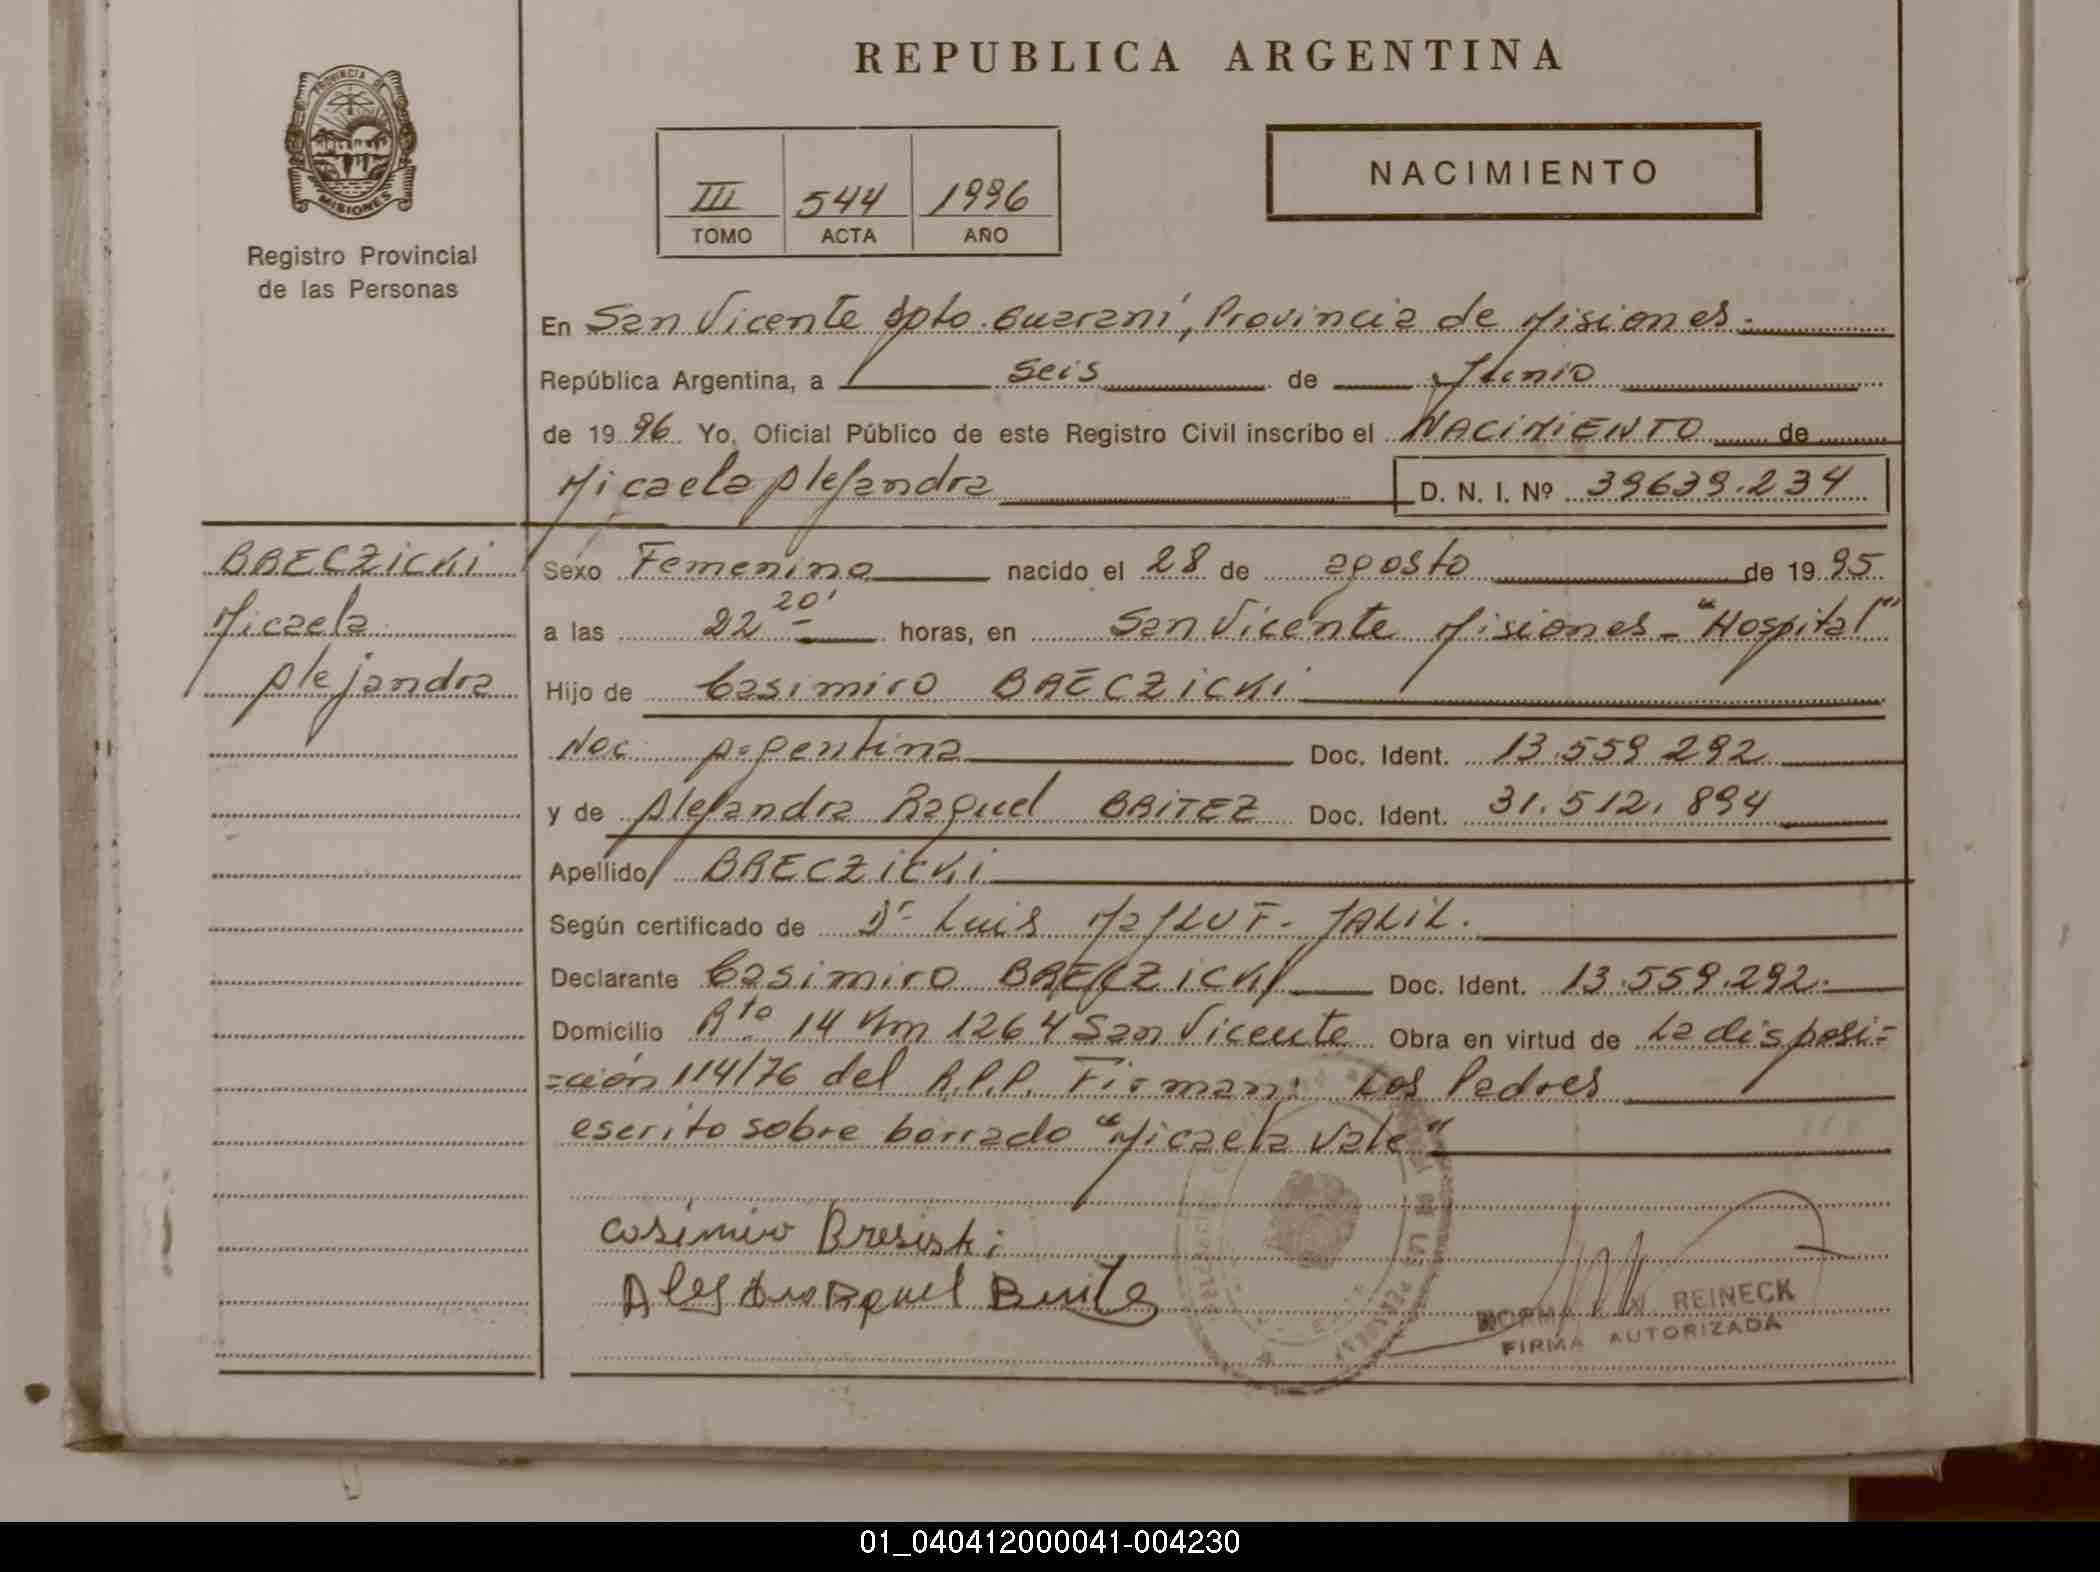 REPUBLICA ARGENTINA
PROVINCIA DE
MISIONES
Registro Provincial
de las Personas
III 544 1996
TOMO ACTA AÑO
NACIMIENTO
En San Vicente Dpto. Guaraní, Provincia de Misiones.
República Argentina, a seis de Junio
de 1996 Yo, Oficial Público de este Registro Civil inscribo el NACIMIENTO de
Micaela Alejandra D. N. I. Nº 39639.234
BRECZICKI
Micaela
Alejandra
Sexo Femenino nacido el 28 de agosto de 1995
a las 22 20' horas, en San Vicente Misiones - "Hospital"
Hijo de Casimiro BRECZICKI
Nac. Argentina Doc. Ident. 13.559.292
y de Alejandra Raquel BRITEZ Doc. Ident. 31.512.894
Apellido BRECZICKI
Según certificado de Dr Luis MaJLUF - JALIL.
Declarante Casimiro BRECZICKI Doc. Ident. 13.559.292.
Domicilio Rta 14 Km 1264 San Vicente Obra en virtud de La disposi=
=ción 114/76 del R.P.P. Firman: Los Padres
escrito sobre borrado "Micaela vale"
Casimiro Bresiski
Raquel
NORMA REINECK
FIRMA AUTORIZADA
01_040412000041-004230